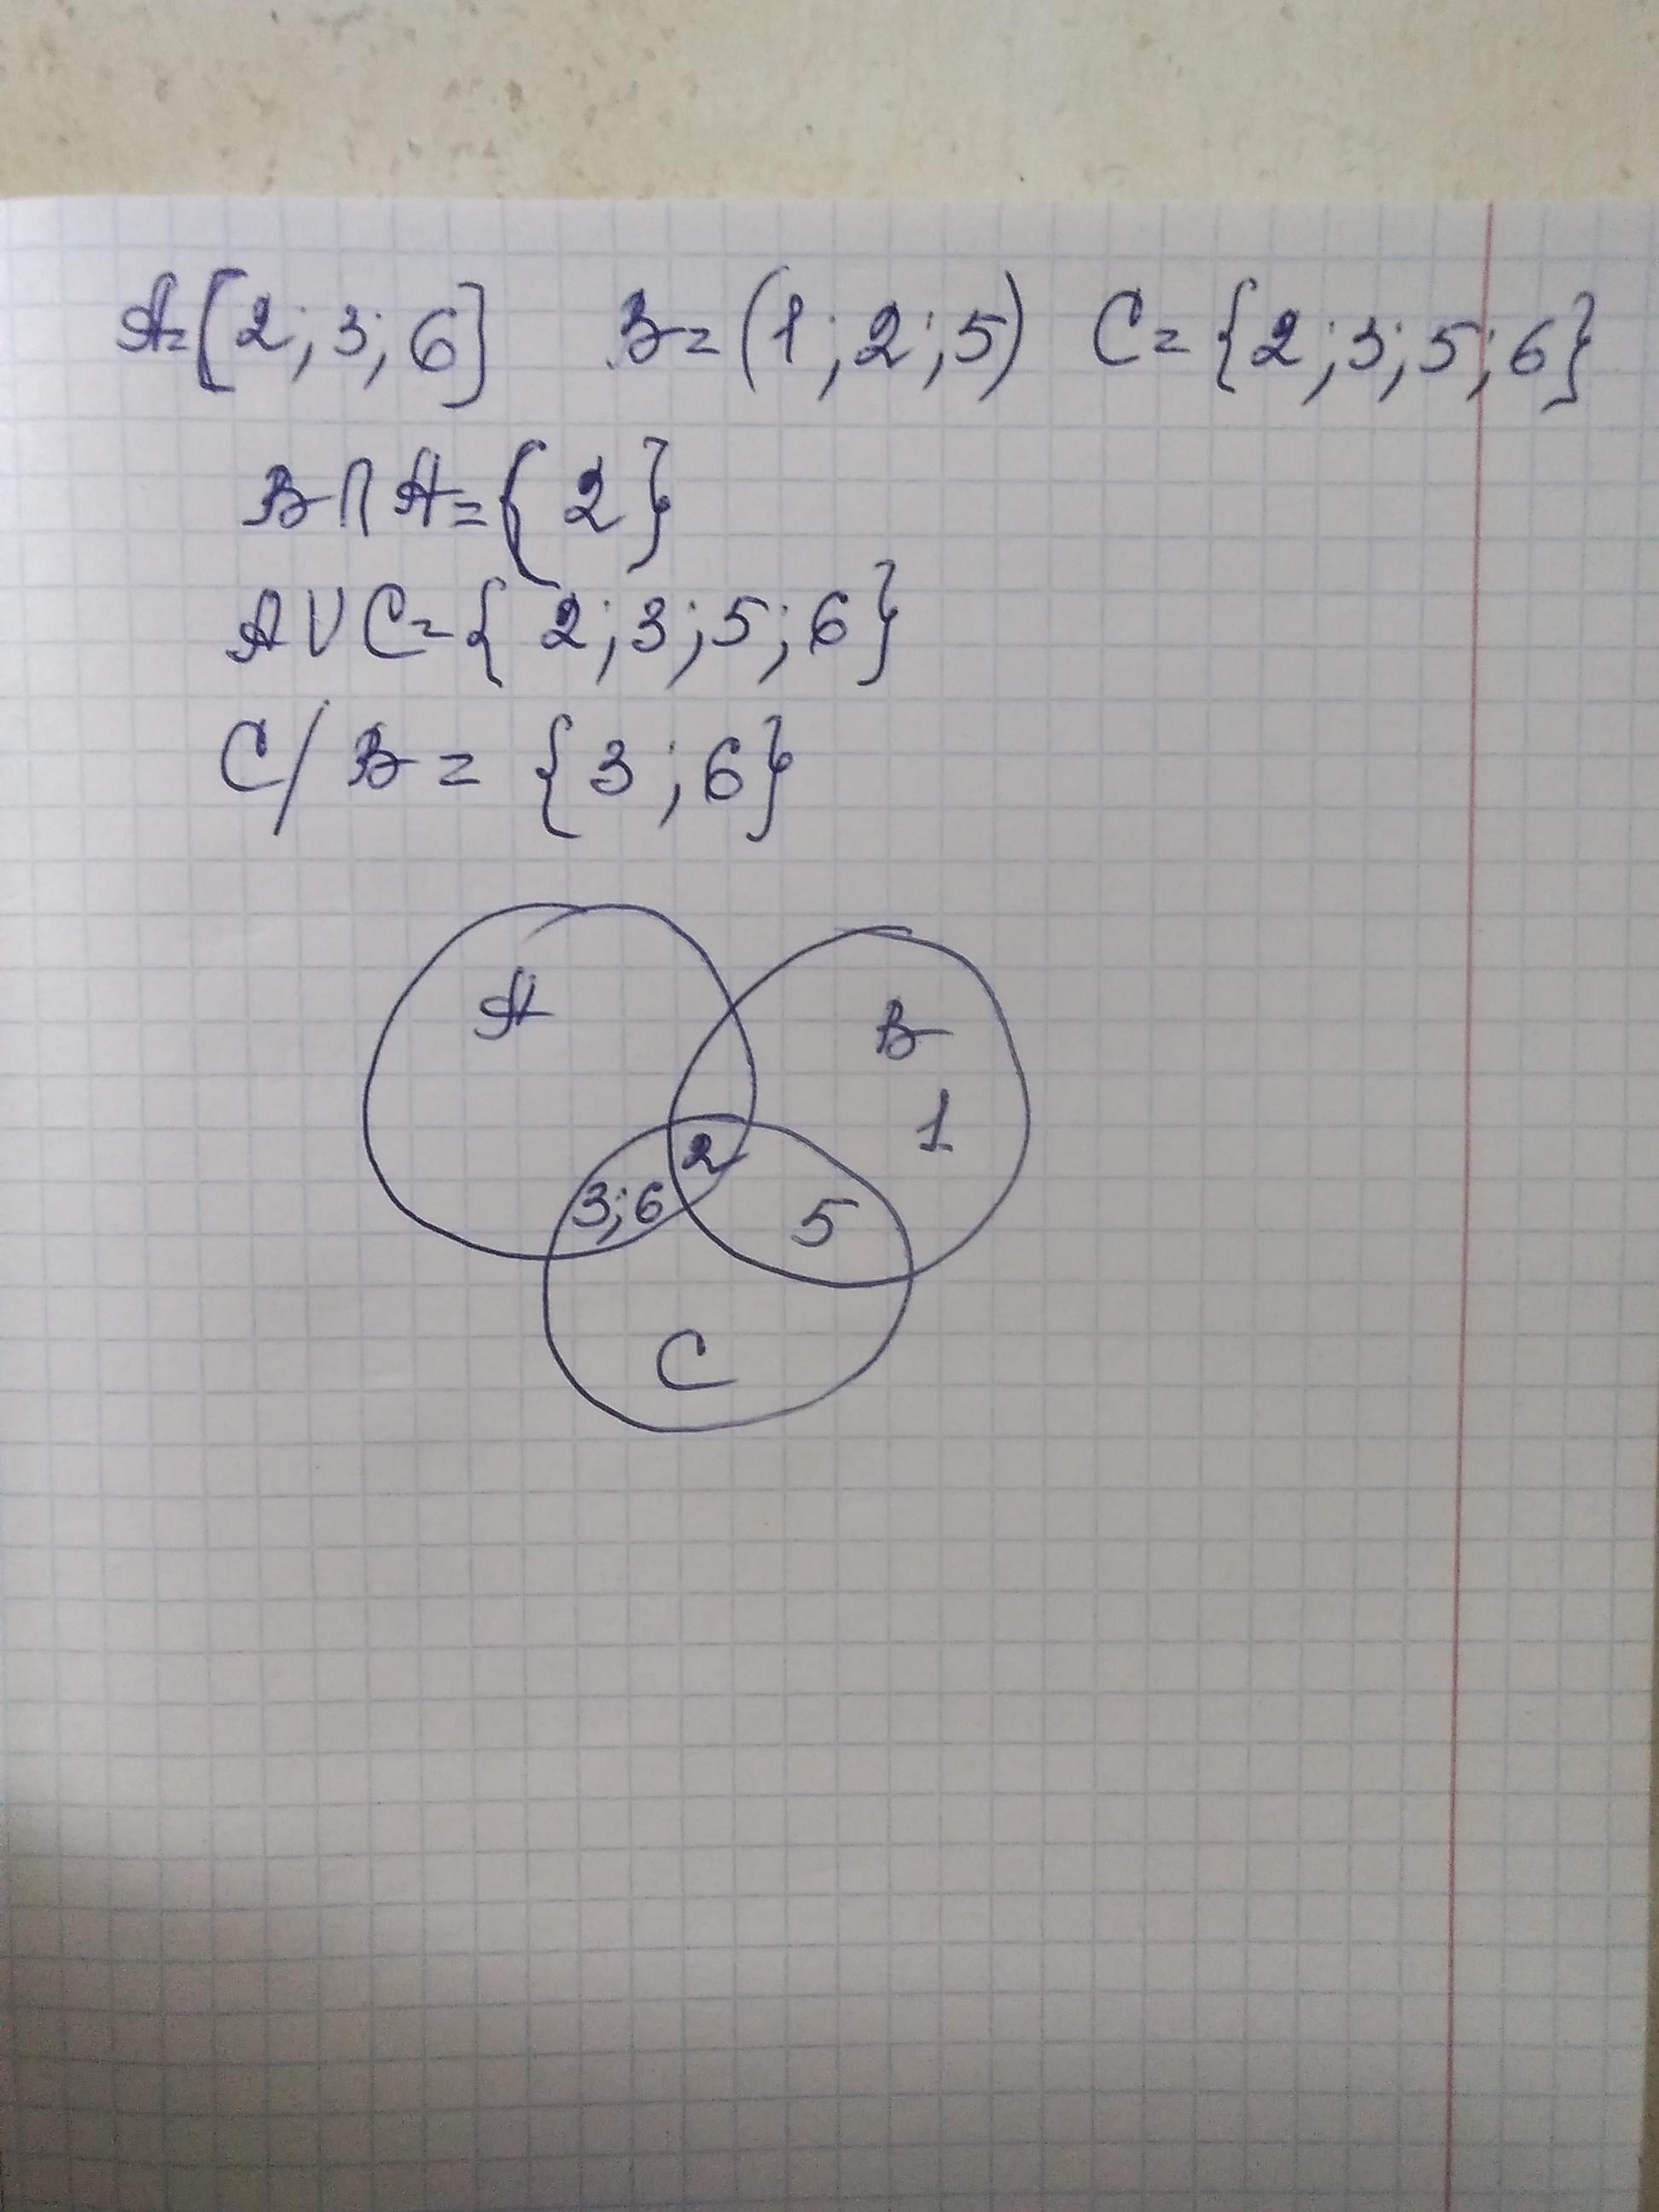 A=[2;3;6] B=(1;2;5) C={2;3;5;6}
B∩A={2}
A∪C={2;3;5;6}
C/B={3;6}
A
B
1
2
3;6
5
C